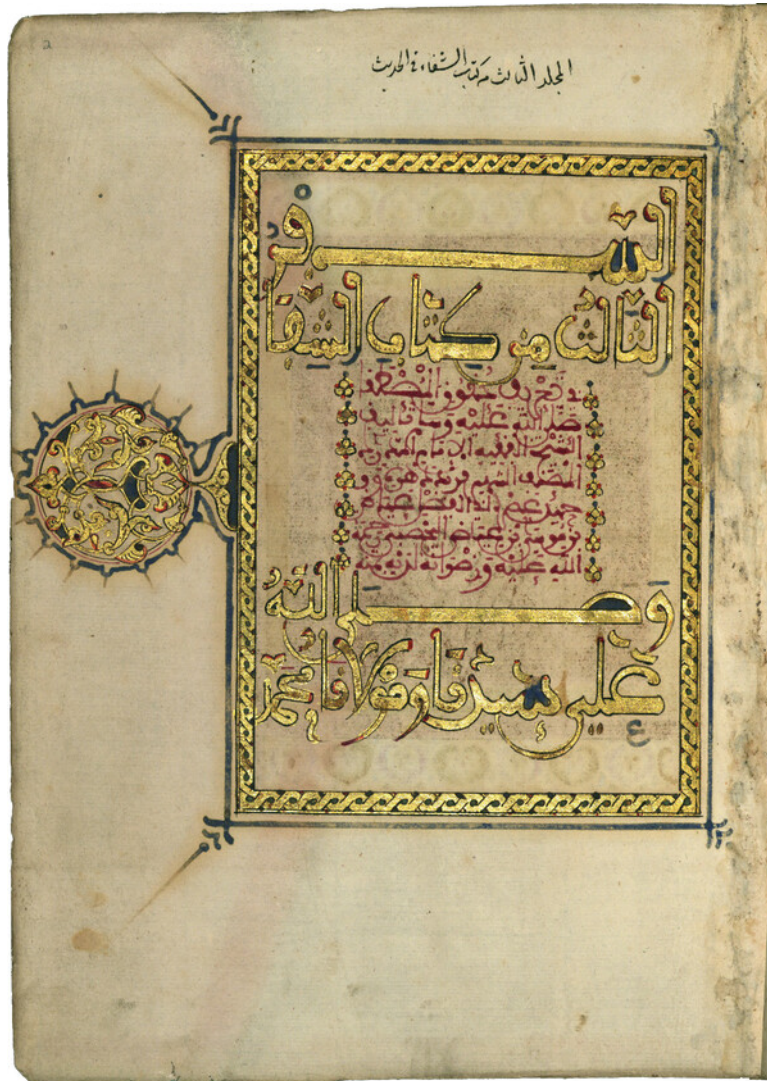 2
المجلد الثالث من كتاب الشفاء في الحديث
السفر
الثالث من كتاب الشفا
بتعريف حقوق المصطفى
صلى الله عليه وسلم تاليف
الشيخ الفقيه الامام
المصنف الشهير فريد دهره و
حيد عصره ابي الفضل عياض
بن موسى بن عياض اليحصبي رحمة
الله عليه ورضوانه
وصلى الله
على سيدنا ومولانا محمد